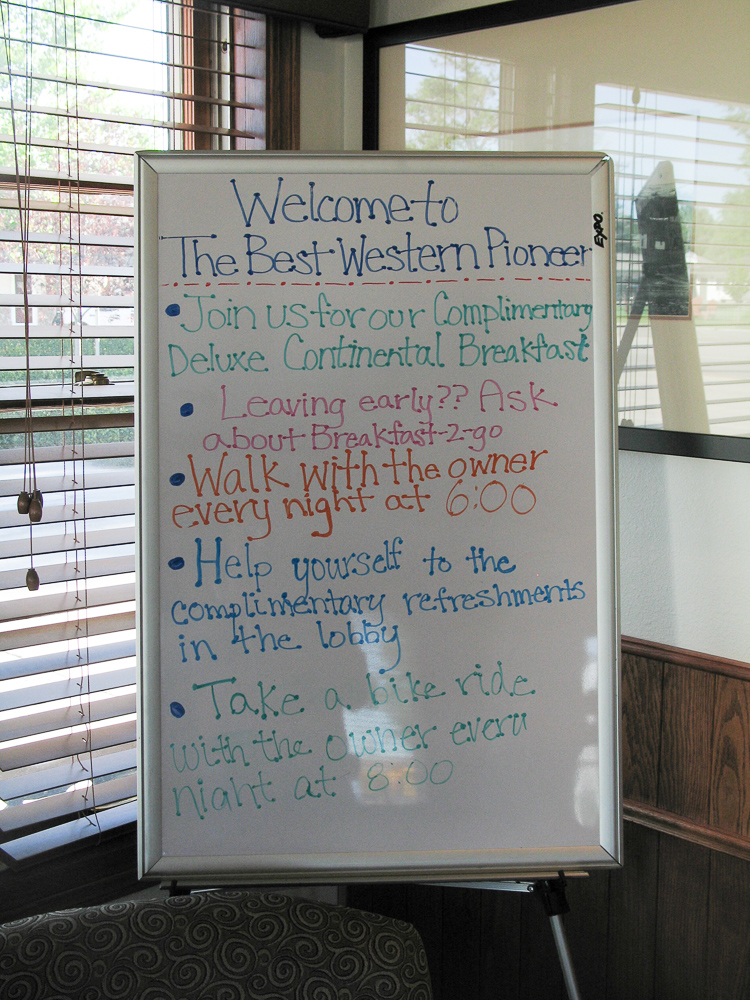 Welcome to
The Best Western Pioneer
EXPO.
• Join us for our Complimentary
Deluxe Continental Breakfast
• Leaving early?? Ask
about Breakfast-2-go
• Walk with the owner
every night at 6:00
• Help yourself to the
complimentary refreshments
in the lobby
• Take a bike ride
with the owner every
night at 8:00